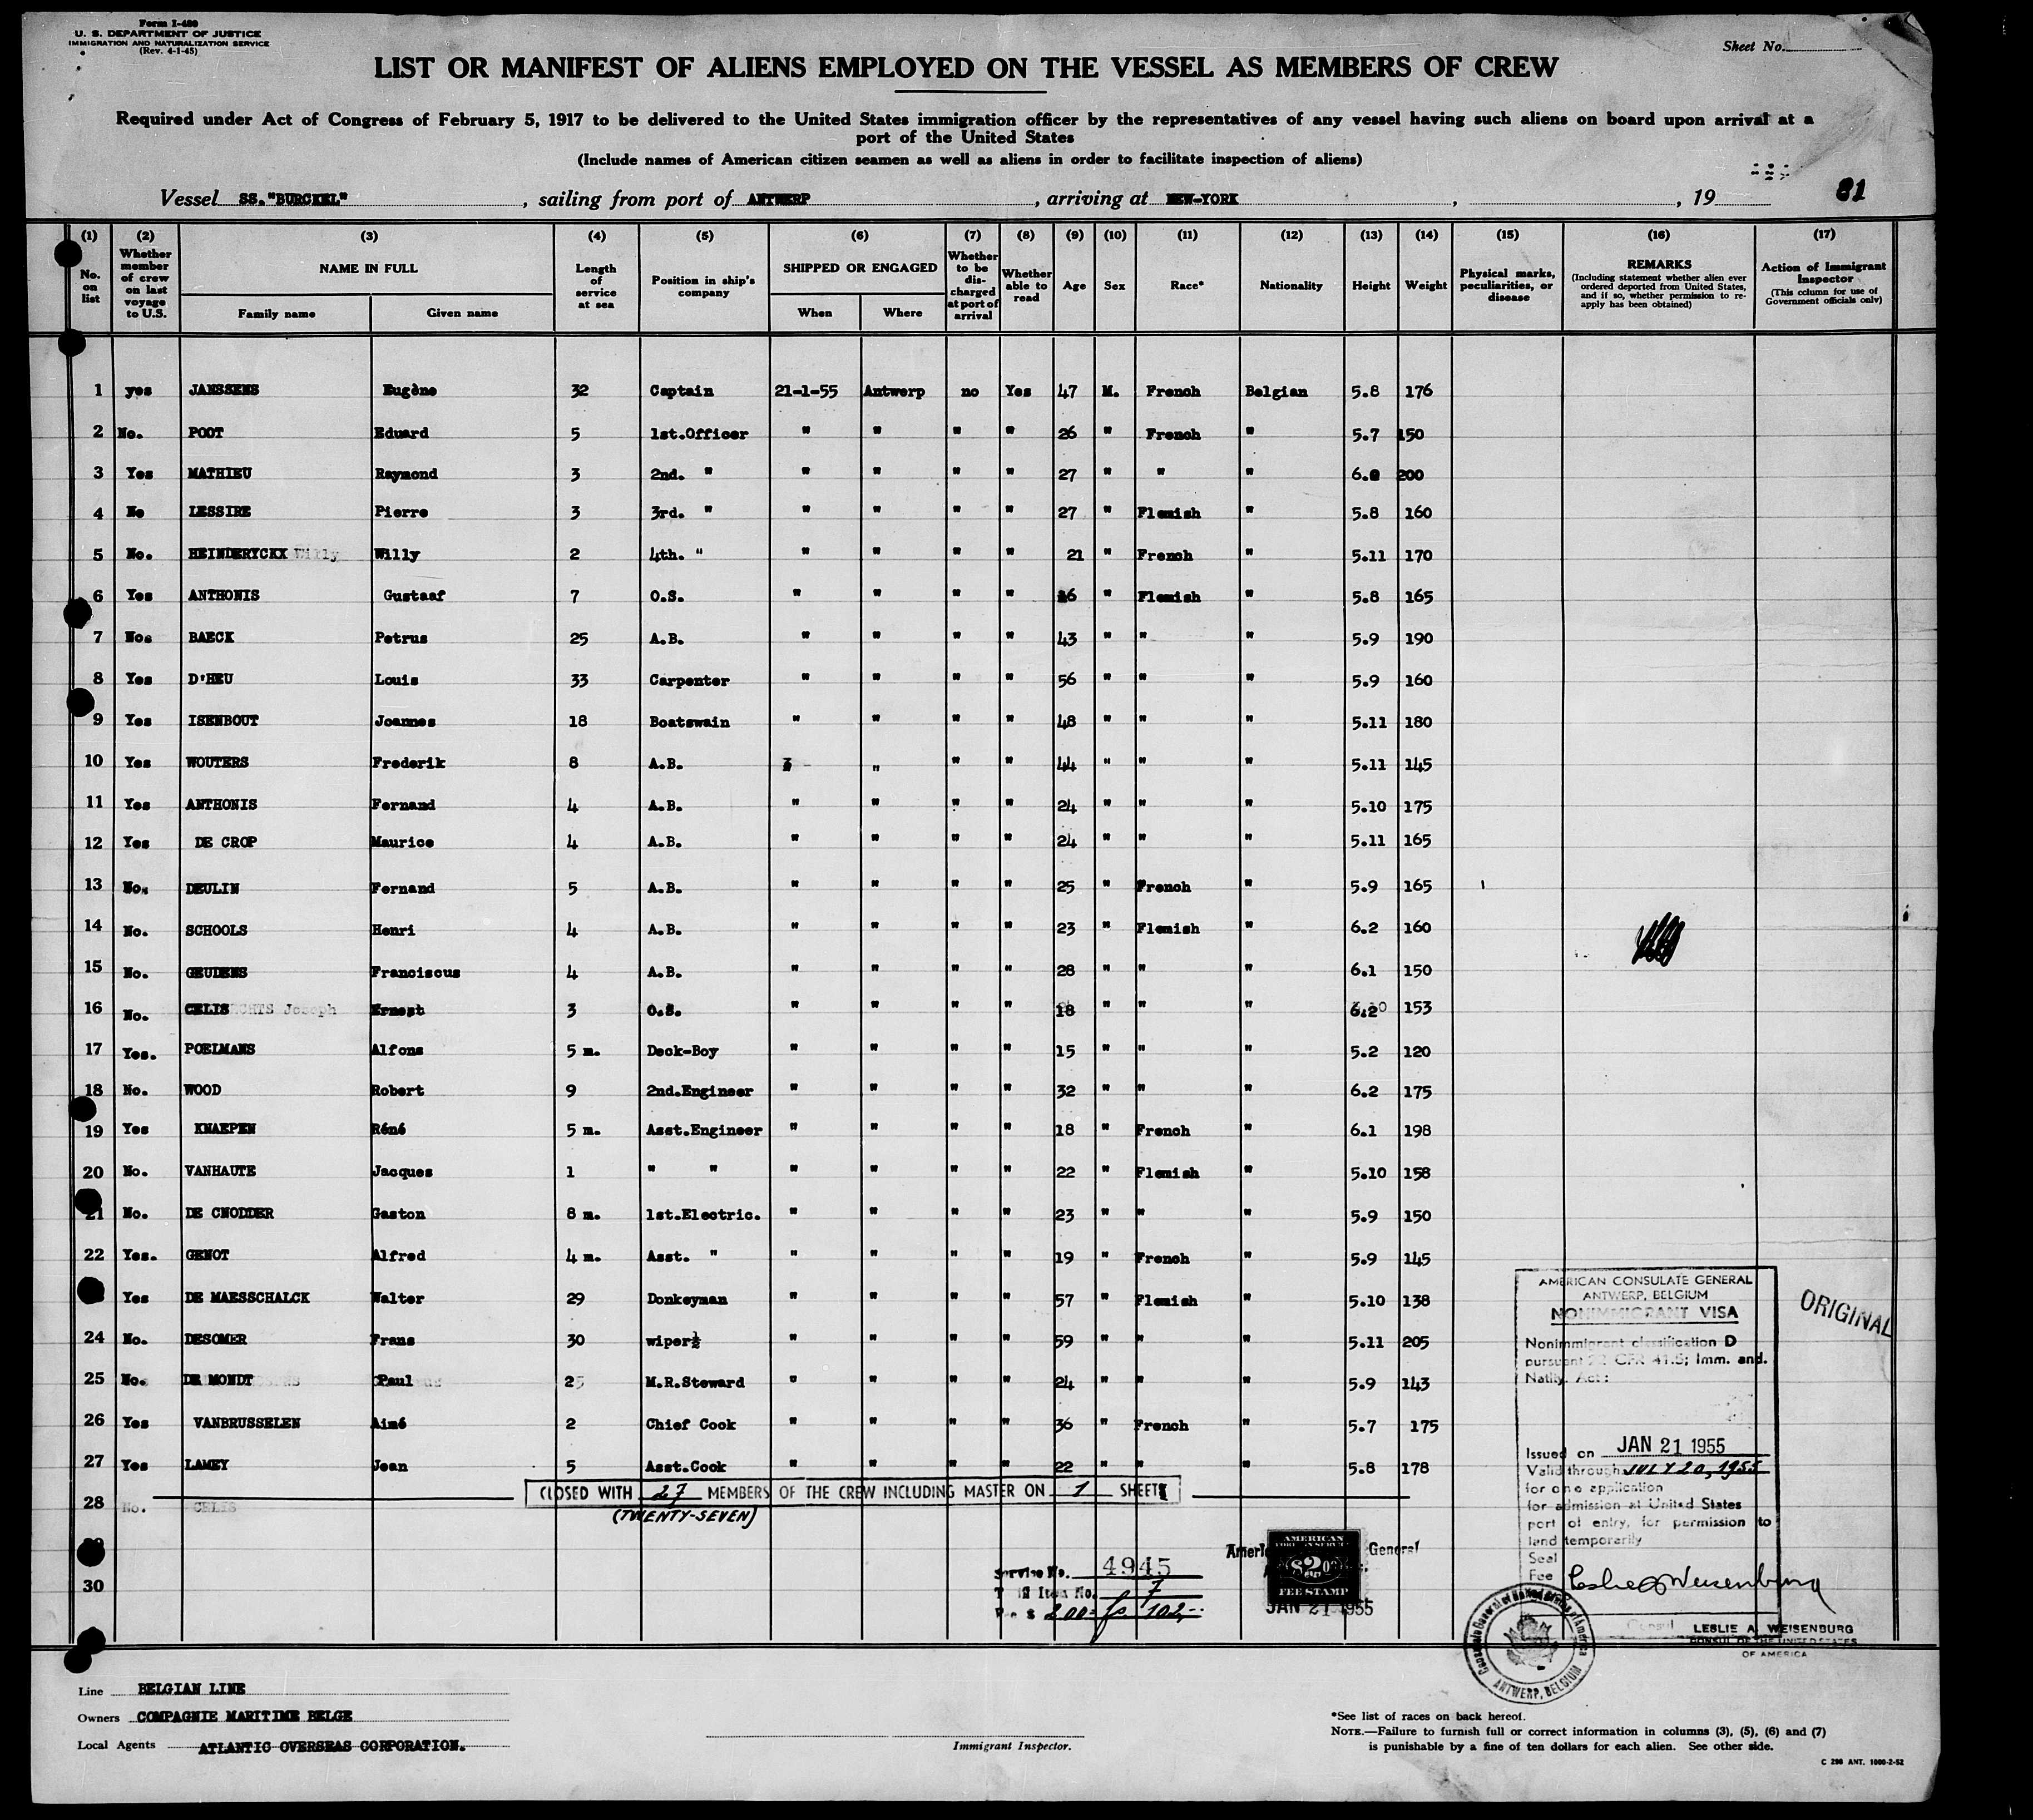 Form I-480
U. S. DEPARTMENT OF JUSTICE
IMMIGRATION AND NATURALIZATION SERVICE
(Rev. 4-1-45)
Sheet No.
LIST OR MANIFEST OF ALIENS EMPLOYED ON THE VESSEL AS MEMBERS OF CREW
Required under Act of Congress of February 5, 1917 to be delivered to the United States immigration officer by the representatives of any vessel having such aliens on board upon arrival at a
port of the United States
(Include names of American citizen seamen as well as aliens in order to facilitate inspection of aliens)
Vessel SS."BURCKEL" , sailing from port of ANTWERP , arriving at NEW-YORK , , 19 81
(1) (2) (3) (4) (5) (6) (7) (8) (9) (10) (11) (12) (13) (14) (15) (16) (17)
No. on list
Whether member of crew on last voyage to U.S.
NAME IN FULL
Family name Given name
Length of service at sea
Position in ship's company
SHIPPED OR ENGAGED
When Where
Whether to be discharged at port of arrival
Whether able to read
Age Sex Race* Nationality Height Weight
Physical marks, peculiarities, or disease
REMARKS
(Including statement whether alien ever ordered deported from United States, and if so, whether permission to reapply has been obtained)
Action of Immigrant Inspector
(This column for use of Government officials only)
1 yes JANSSENS Eugène 32 Captain 21-1-55 Antwerp no Yes 47 M. French Belgian 5.8 176
2 No. POOT Eduard 5 1st.Officer " " " " 26 " French " 5.7 150
3 Yes MATHIEU Raymond 3 2nd. " " " " " 27 " " " 6.0 200
4 No LESSIRE Pierre 3 3rd. " " " " " 27 " Flemish " 5.8 160
5 No. HEINDERYCKX Willy Willy 2 4th. " " " " " 21 " French " 5.11 170
6 Yes ANTHONIS Gustaaf 7 O.S. " " " " 6 " Flemish " 5.8 165
7 No. BAECK Petrus 25 A.B. " " " " 43 " " " 5.9 190
8 Yes D'HEU Louis 33 Carpenter " " " " 56 " " " 5.9 160
9 Yes ISENBOUT Joannes 18 Boatswain " " " " 48 " " " 5.11 180
10 Yes WOUTERS Frederik 8 A.B. " " " 44 " " " 5.11 145
11 Yes ANTHONIS Fernand 4 A.B. " " " " 24 " " " 5.10 175
12 Yes DE CROP Maurice 4 A.B. " " " " 24 " " " 5.11 165
13 No. DEULIN Fernand 5 A.B. " " " " 25 " French " 5.9 165
14 No. SCHOOLS Henri 4 A.B. " " " " 23 " Flemish " 6.2 160
15 No. GEUDENS Franciscus 4 A.B. " " " " 28 " " " 6.1 150
16 No. CELIS Joseph Ernest 3 O.S. " " " " 18 " " " 6.2 153
17 Yes. POELMANS Alfons 5 m. Deck-Boy " " " " 15 " " " 5.2 120
18 No. WOOD Robert 9 2nd.Engineer " " " " 32 " " " 6.2 175
19 Yes KNAEPEN Réné 5 m. Asst.Engineer " " " " 18 " French " 6.1 198
20 No. VANHAUTE Jacques 1 " " " " " " 22 " Flemish " 5.10 158
21 No. DE CNODDER Gaston 8 m. 1st.Electric. " " " " 23 " " " 5.9 150
22 Yes. GENOT Alfred 4 m. Asst. " " " " " 19 " French " 5.9 145
Yes DE MAESSCHALCK Walter 29 Donkeyman " " " " 57 " Flemish " 5.10 138
24 No. DESOMER Frans 30 wiper " " " " 59 " " " 5.11 205
25 No. DE MONDT Paul 2 M.R.Steward " " " " 24 " " " 5.9 143
26 Yes VANBRUSSELEN Aimé 2 Chief Cook " " " " 36 " French " 5.7 175
27 Yes LAMEY Jean 5 Asst.Cook " " " " 22 " " " 5.8 178
CLOSED WITH 27 MEMBERS OF THE CREW INCLUDING MASTER ON 1 SHEET
28 No. CELIS
(TWENTY-SEVEN)
30
Service No. 4945
Item No. 7
200 fr 102,-
General
AMERICAN
$2.00
FEE STAMP
JAN 21 1955
AMERICAN CONSULATE GENERAL
ANTWERP, BELGIUM
NONIMMIGRANT VISA
Nonimmigrant classification D
pursuant 22 CFR 41.5; Imm. and.
Natlly. Act:
Issued on JAN 21 1955
Valid through JULY 20, 1955
for one application
for admission at United States
port of entry, for permission to
land temporarily
Seal
Fee Leslie A Weisenburg
Consul LESLIE A. WEISENBURG
CONSUL OF THE UNITED STATES
OF AMERICA
ORIGINAL
Consulate General of United States of America
ANTWERP, BELGIUM
Line BELGIAN LINE
Owners COMPAGNIE MARITIME BELGE
Local Agents ATLANTIC OVERSEAS CORPORATION.
Immigrant Inspector.
*See list of races on back hereof.
NOTE.—Failure to furnish full or correct information in columns (3), (5), (6) and (7)
is punishable by a fine of ten dollars for each alien. See other side.
C 296 ANT. 1000-2-52